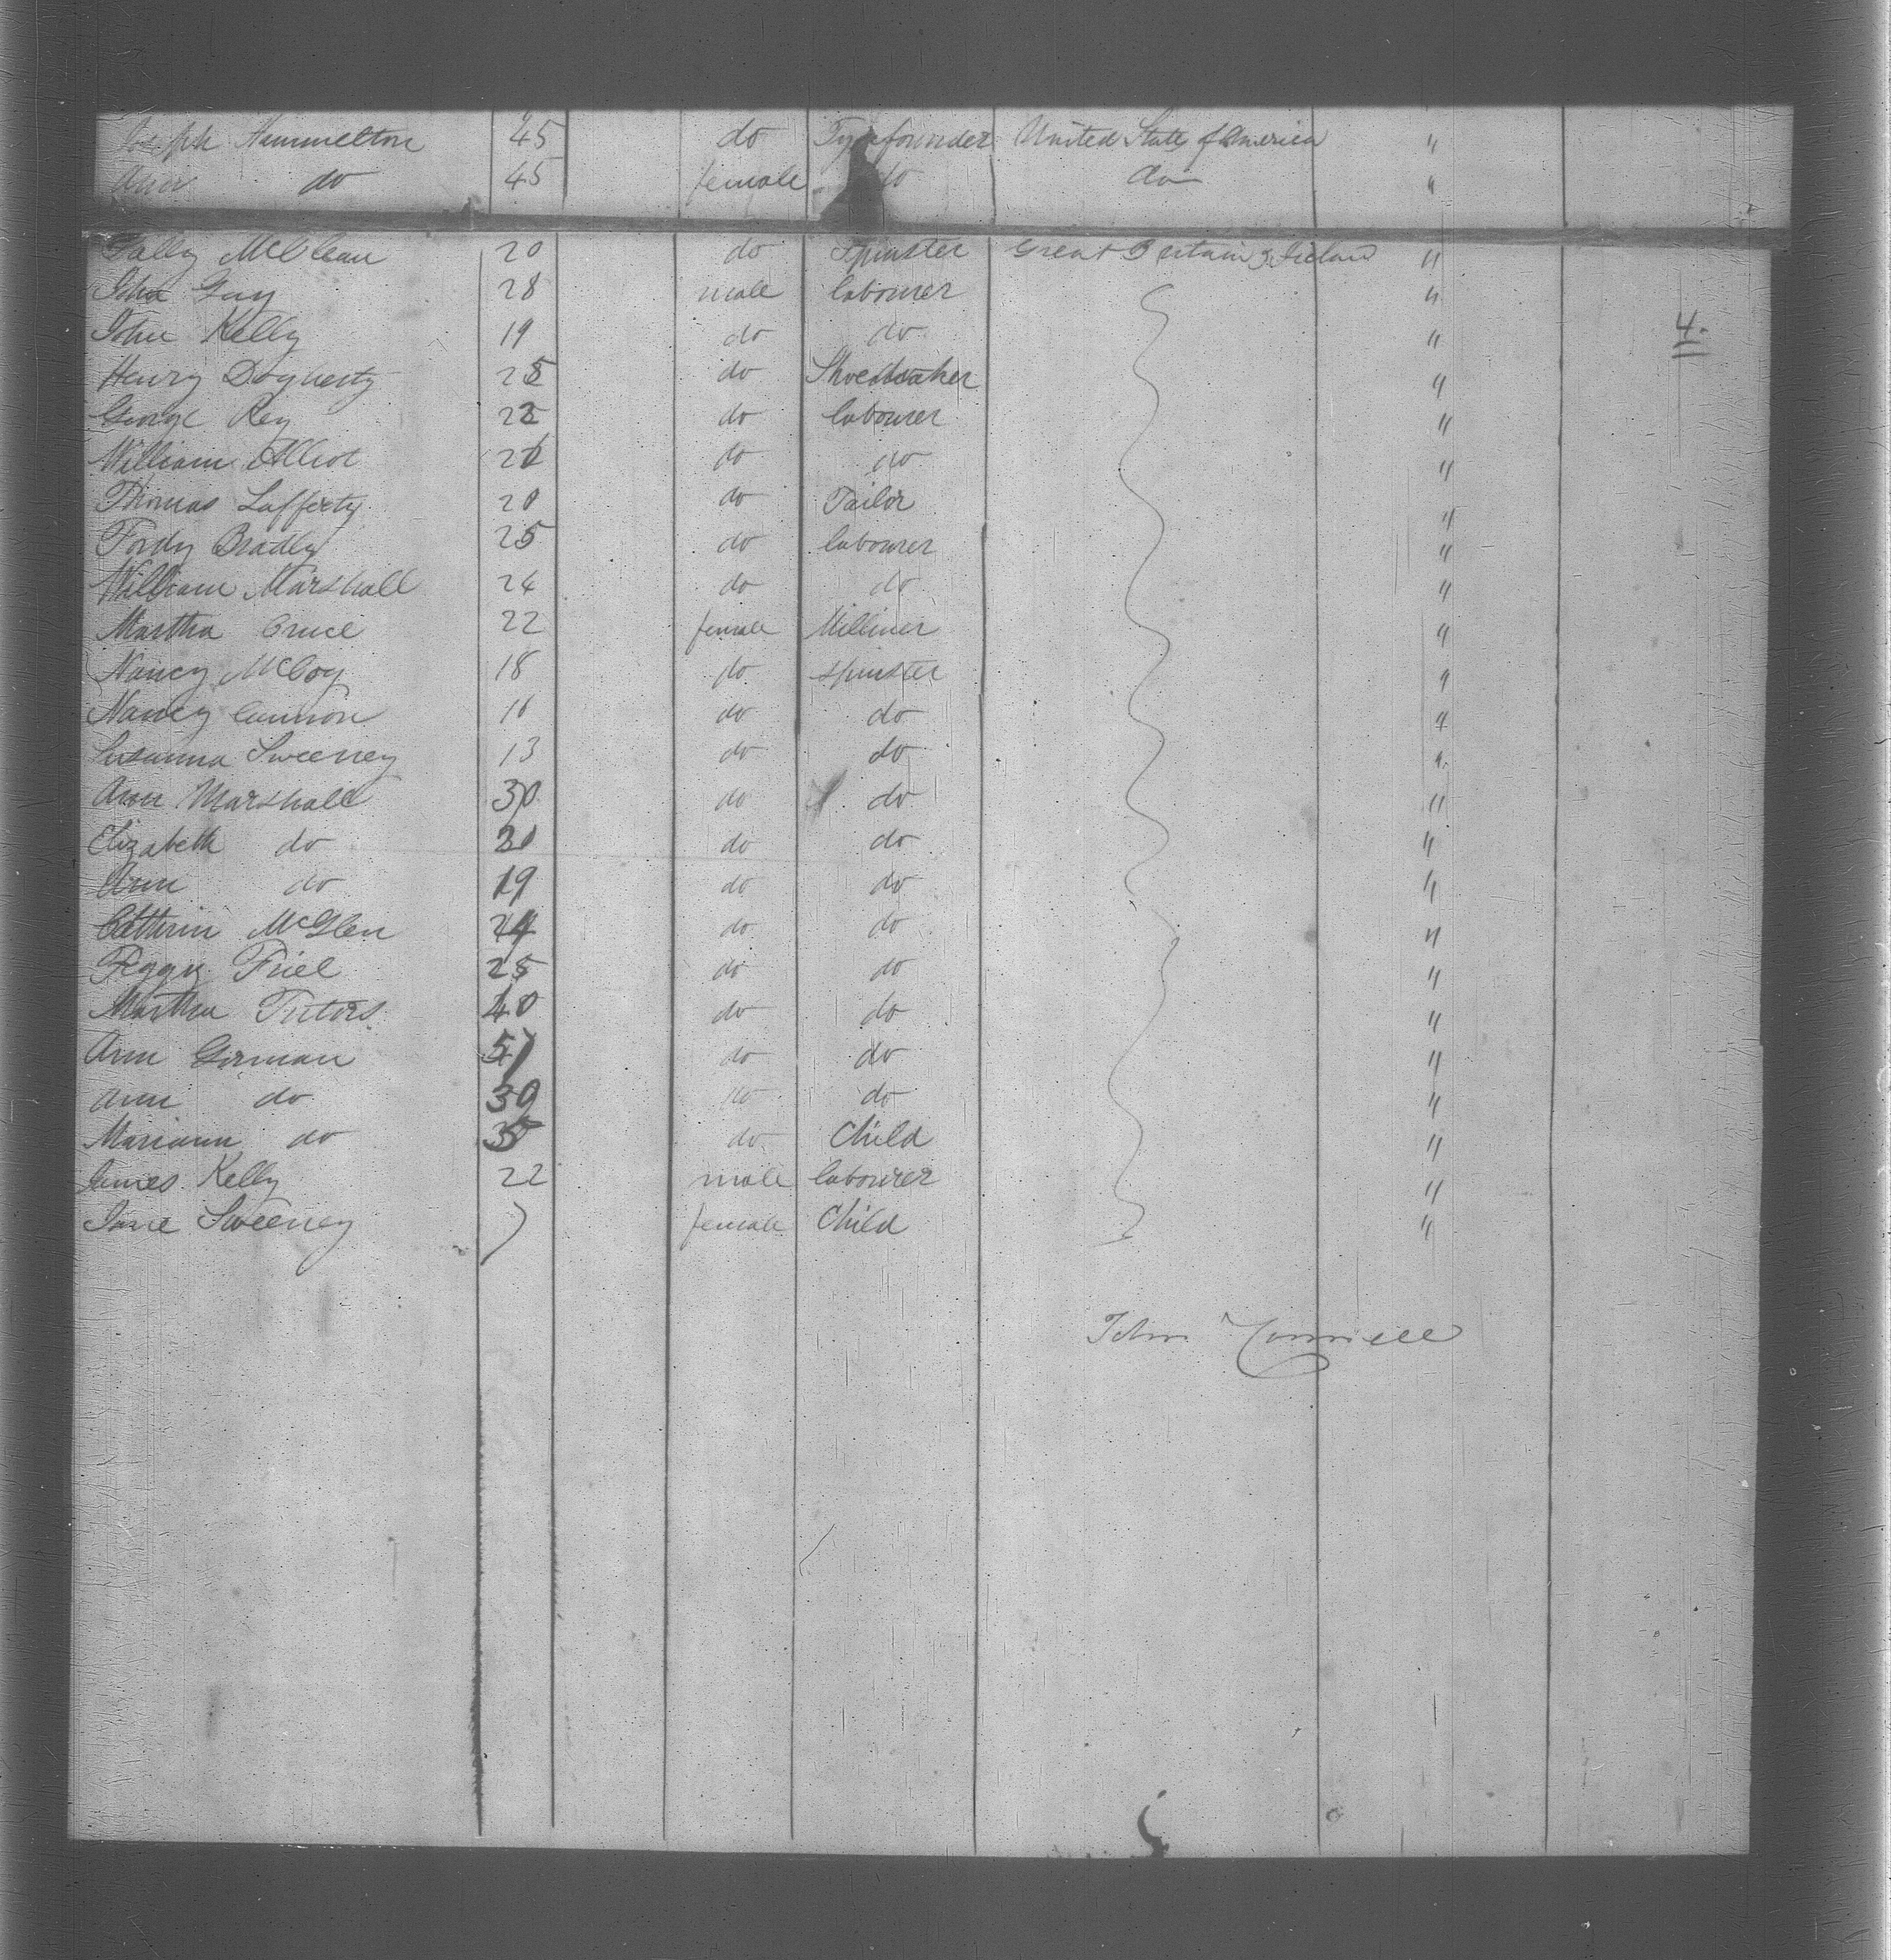 Joseph Hammelton 45 do Typefounder United State of America "
Ann do 45 female do do "
Sally McClean 20 do Spinster Great Britain & Ireland "
John Guy 28 male labourer "
John Kelly 19 do do " 4.
Henry Dogherty 25 do Shoemaker "
George Rey 22 do labourer "
William Elliot do do "
Thomas Lafferty 20 do Tailor "
Fordy Bradly 25 do labourer "
William Marshall 24 do do "
Martha Cruce 22 female Milliner "
Nancy McCoy 18 do spinster "
Nancy Cannon do do "
Susanna Sweeney 13 do do "
Ann Marshall 30 do do "
Elizabeth do do do "
Ann do 19 do do "
Catherin McGlen 24 do do "
Peggy Friel 25 do do "
Martha 40 do do "
Ann Gorman do do "
Ann do do do "
Mariann do do Child "
James Kelly 22 male labourer "
Jane Sweeney female Child "
John